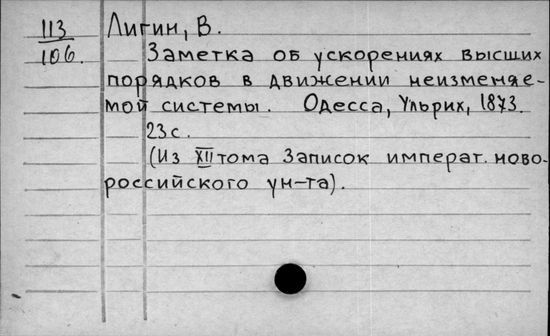 113 Лигин, В.
106. Заметка об ускорениях высших
порядков в движении неизменяе-
мой системы. Одесса, Ульрих, 1873.
23 с.
(Из XII тома Записок императ. ново-
российского ун-та).